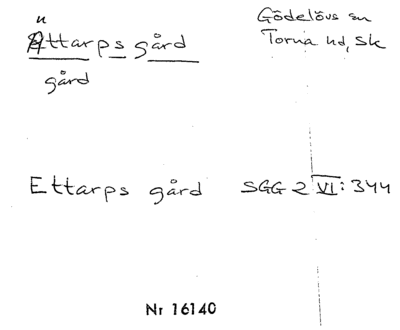 n
Attarps gård
gård
Gödelövs sn
Torna hd, Sk
Ettarps gård SGG 2 VI: 344
Nr 16140